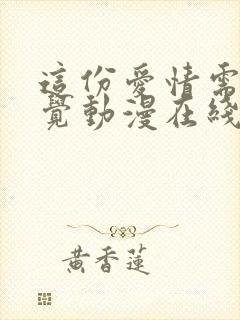 這份愛情需
覺動漫在綫
黃香蓮